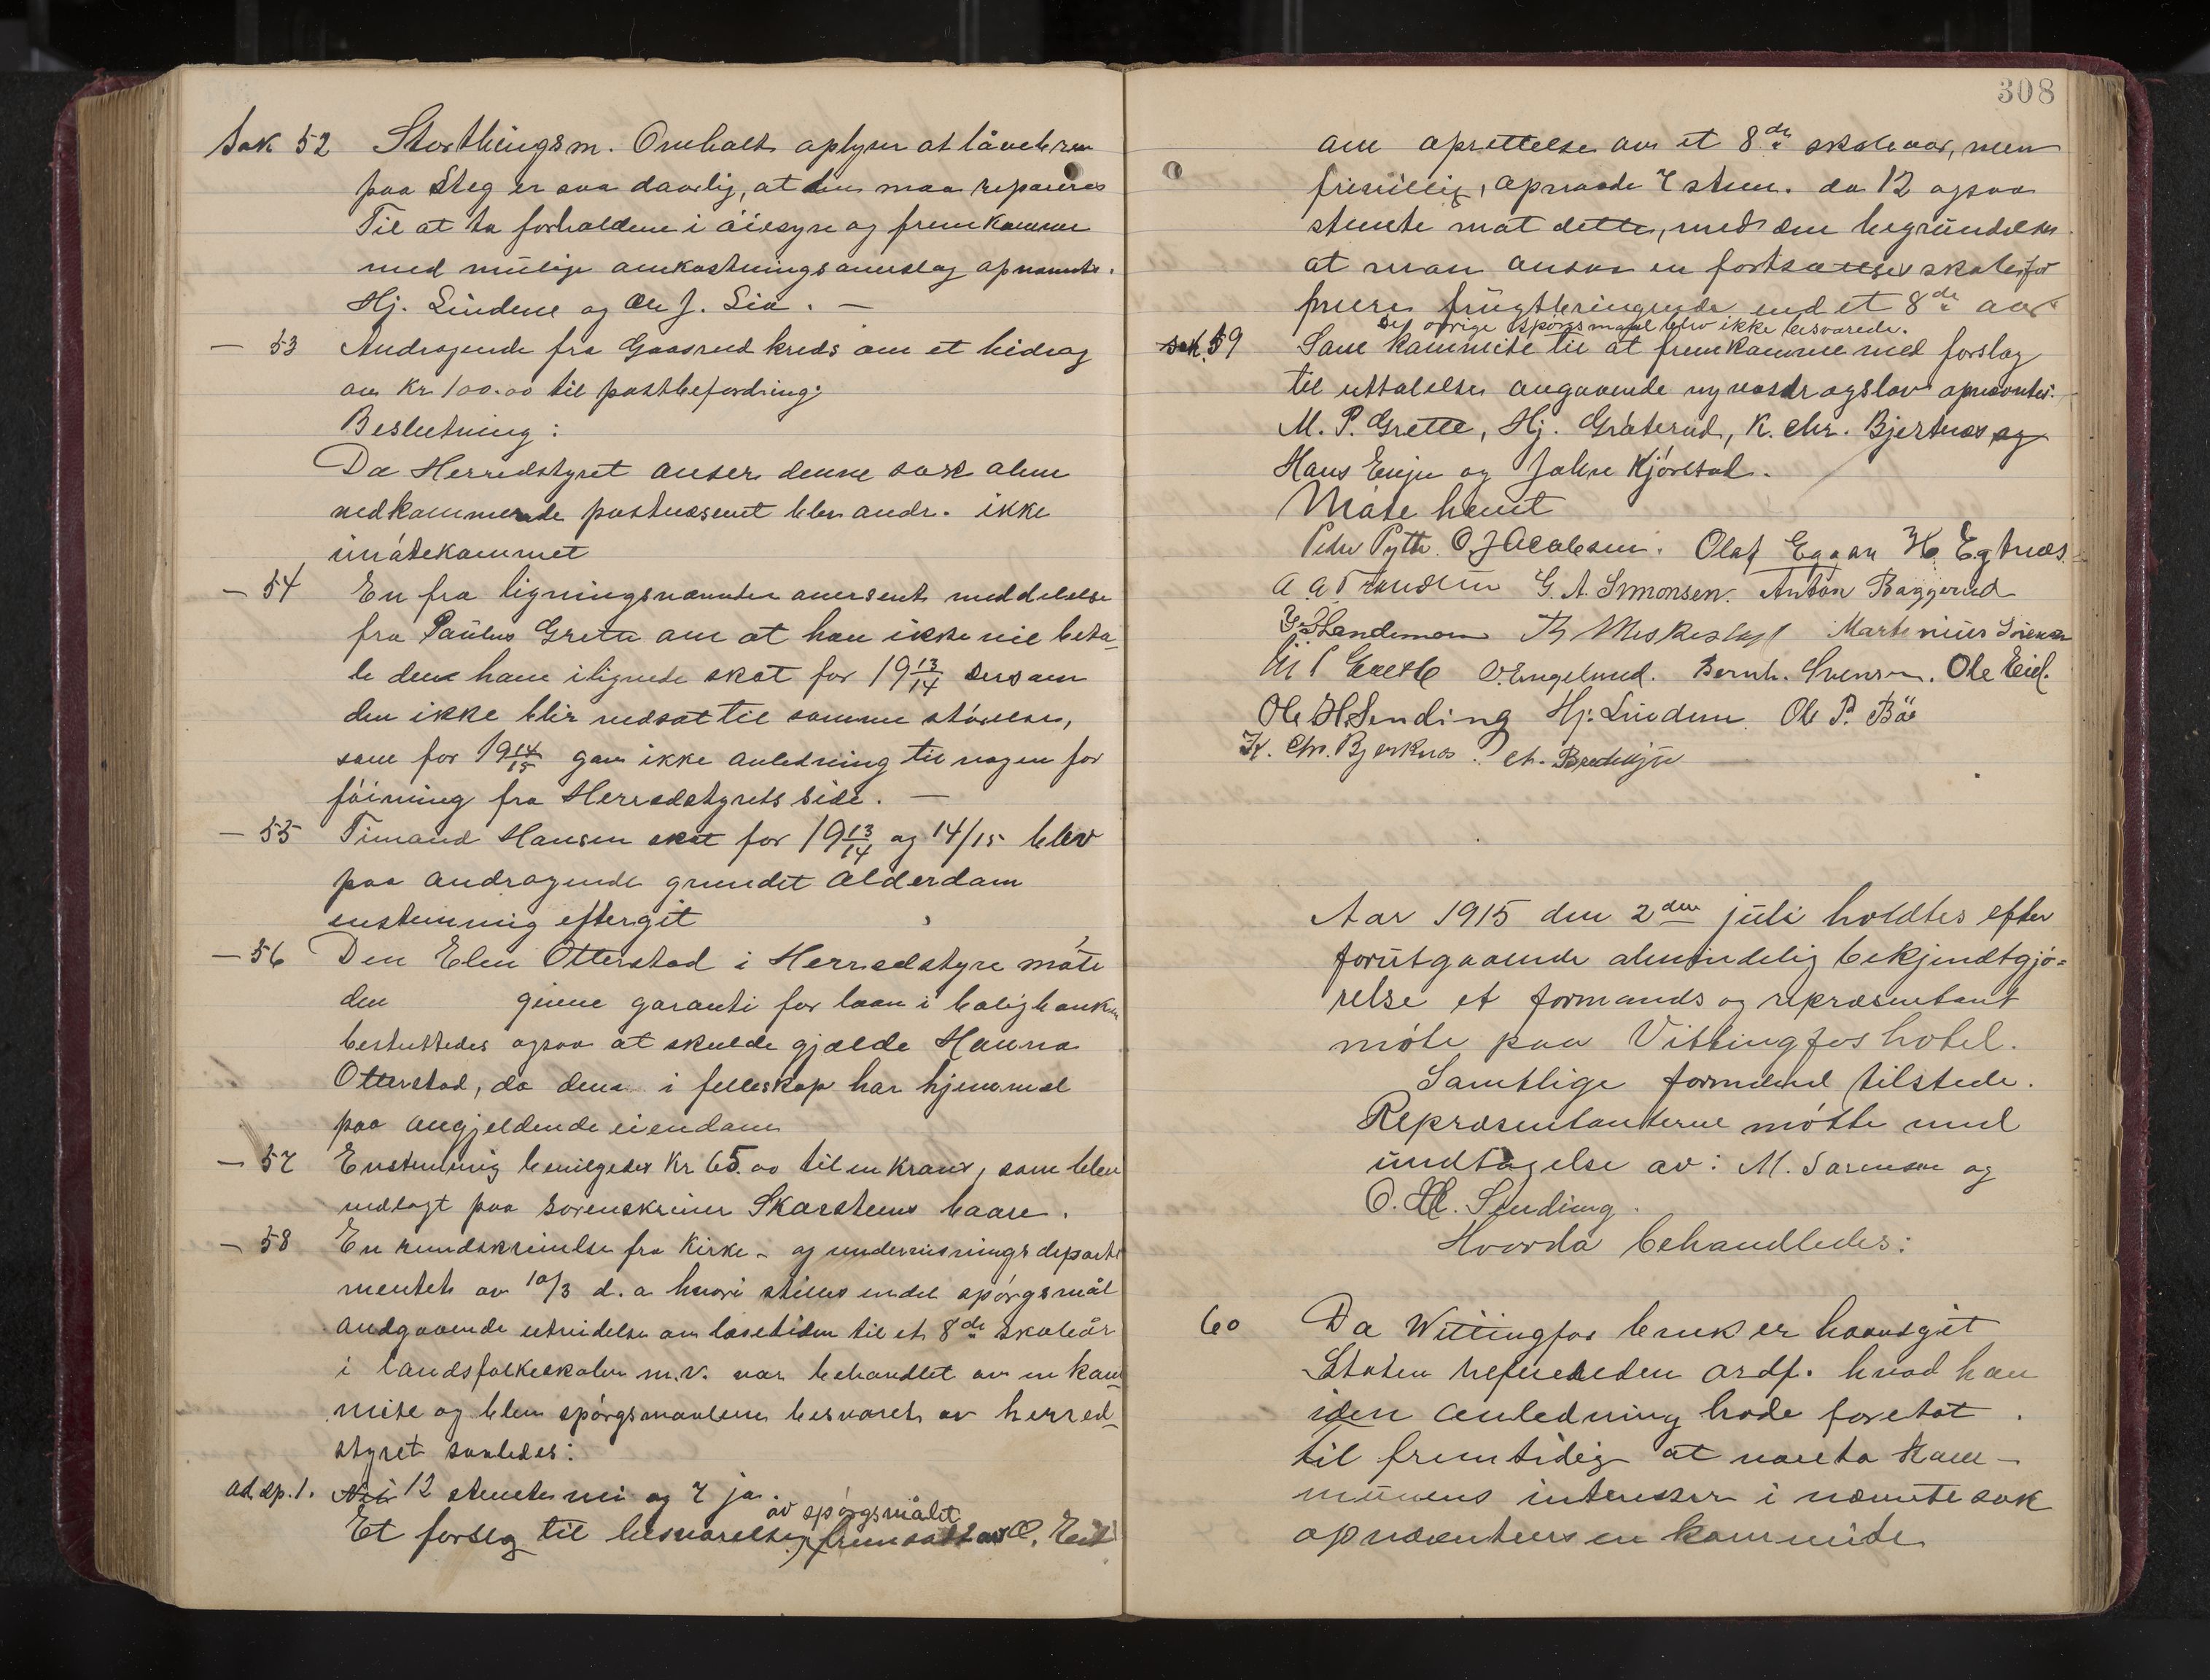 Sak 52 Storthingsm. Omholt oplyser at låvebroen
paa Steg er saa daarlig, at den maa repareres
Til at ta forholdene i öiesyn og fremkomme
med mulige omkostningsanslag opnævntes.
Hj. Lindem og Ole J. Lia. —
— 53 Andragende fra Gaasrud kreds om et bidrag
av Kr. 100.00 til postbefordring:
Beslutning:
Da Herredstyret anser denne sak alene
vedkommende postvæsent blev andr. ikke
imötekommet
— 54 En fra ligningsnævnden oversent meddelelse
fra Paulus Grette om at han ikke vil beta-
le den ham ilignede skat for 19 13/14 dersom
den ikke blir nedsat til samme störrelse,
som for 19 14/15 gav ikke anledning til nogen for
föining fra Herredstyrets side. —
— 55 Timand Hansen skat for 19 13/14 og 14/15 blev
paa andragende grundet alderdom
enstemmig eftergit
— 56 Den Elen Otterstad i Herredstyre möte
den givne garanti for laan i boligbanken
besluttedes ogsaa at skulde gjælde Hanna
Otterstad, da de i felleskap har hjemmel
paa angjeldende eiendom
— 57 Enstemmig bevilgedes Kr 65.00 til en Krans, som blev
nedlagt paa Sorenskriver Skarstens baare.
— 58 En rundskrivelse fra Kirke- og undervisningsdeparte
mentet av 10/3 d.a hvori stilles endel spörgsmål
andgaaende utvidelse av læsetiden til et 8de skoleår
i landsfolkeskolen m.v. var behandlet av en kom-
mite og blev spörgsmaalene besvaret av herred-
styret saaledes:
ad sp. 1. Nei 12 stemte nei og 7 ja.
av spörgsmålet
Et forslag til besvarelse, fremsatt av O. Eid
308
om oprettelse av et 8de skoleaar, men
frivillig, opnaade 7 stem. da 12 ogsaa
stemte mot dette, med den begrundelse
at man ansaa en fortsættelsesskole for
mere frugtbringende end et 8de aar
De övrige spörgsmaal blev ikke besvarede.
Sak. 59 Som kommite til at fremkomme med forslag
til uttalelse angaaende ny vasdragslov opnævntes:
M. P. Grette, Hj. Gråterud, K. Chr. Bjerknes og
Hans Enju og Johan Kjörstad.
Möte hevet
Peder Pytt. O Jacobsen. Olaf Eggan H. Egtnæs.
A A Trondsen G. A. Simonsen. Anton Baggerud
G. Sandeman Martinius Sörensen
M P Grette O. Engelund. Bernh. Svensen. Ole Eid.
Ole H. Sending Hj. Lindem Ole P. Bö
K. Chr. Bjerknes.
Aar 1915 den 2den juli holdtes efter
forutgaaende almindelig bekjendtgjö-
relse et formands og repræsentant
möte paa Vittingfos hotel.
Samtlige formænd tilstede.
Repræsentanterne mötte med
undtagelse av: M. Sörensen og
O. H. Sending.
Hvorda behandledes:
60 Da Wittingfos bruk er hævdgit
Staten refererden ordf. hvad han
iden anledning hade foretat.
til fremtidig at vareta kom-
munens interesser i nævnte sak
opnævntes en kommite